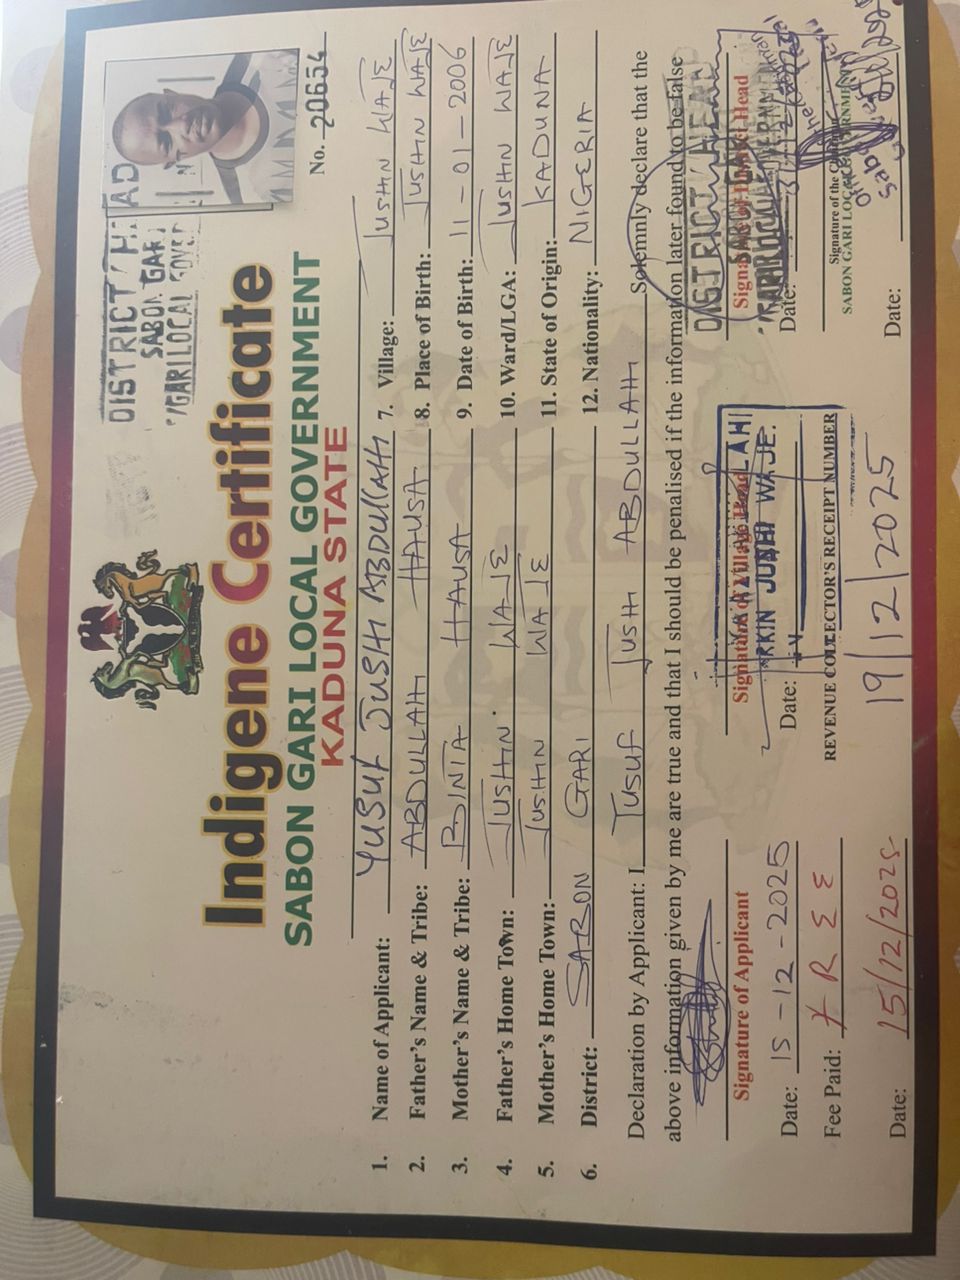 DISTRICT HEAD
SABON GARI
LOCAL GOVER
No. 20654
Indigene Certificate
SABON GARI LOCAL GOVERNMENT
KADUNA STATE
1. Name of Applicant: YUSUF JUSHI ABDULLAHI
2. Father's Name & Tribe: ABDULLAHI HAUSA
3. Mother's Name & Tribe: BINTA HAUSA
4. Father's Home Town: JUSHIN WAJE
5. Mother's Home Town: JUSHIN WAJE
6. District: SABON GARI
7. Village: JUSHIN WAJE
8. Place of Birth: JUSHIN WAJE
9. Date of Birth: 11-01-2006
10. Ward/LGA: JUSHIN WAJE
11. State of Origin: KADUNA
12. Nationality: NIGERIA
Declaration by Applicant: I YUSUF JUSHI ABDULLAHI Solemnly declare that the
above information given by me are true and that I should be penalised if the information later found to be false
Signature of Applicant
Date: 15-12-2025
Fee Paid: FREE
Date: 15/12/2025
Signature of Village Head
WAJE.
Date:
REVENUE COLLECTOR'S RECEIPT NUMBER
19/12/2025
DISTRICT HEAD
Signature of District Head
Date:
Signature of the
SABON GARI LOCAL GOVERNMENT
Date: